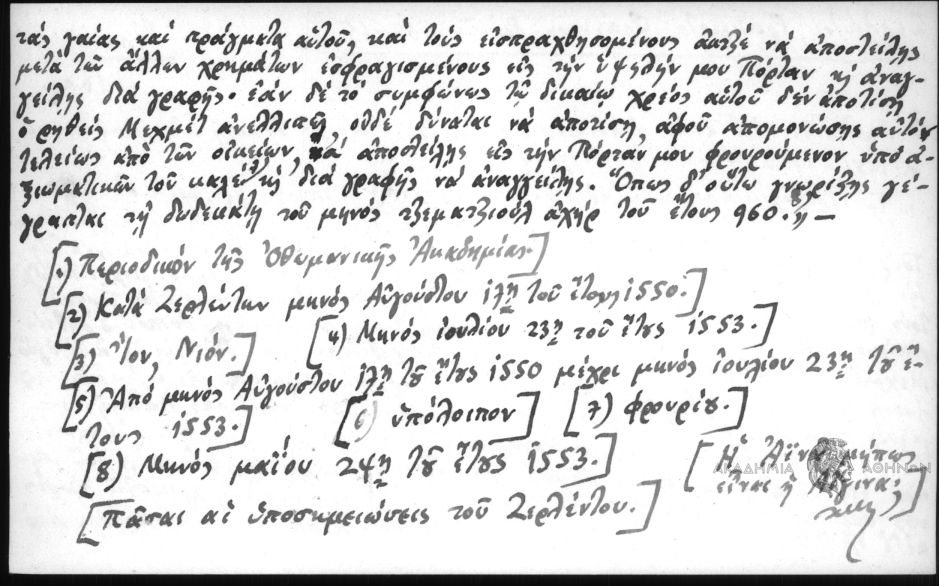 τάς γαίας καί πράγματα αὐτοῦ, καί τούς εἰσπραχθησομένους ἀκτζέ νά ἀποστείλης
μετά τῶν ἄλλων χρημάτων ἐσφραγισμένους εἰς τήν ὑψηλήν μου Πόρταν κἠ ἀναγ-
γείλης διά γραφῆς. ἐάν δέ τό συμφώνως τῷ δικαίῳ χρέος αὐτοῦ δέν ἀποτίση
ὁ ρηθείς Μεχμέτ ἀνελλιπές, οὐδέ δύναται νά ἀποτίση, ἀφοῦ ἀπομονώσης αὐτόν
τελείως ἀπό τῶν οἰκείων, νά ἀποστείλης εἰς τήν Πόρταν μου φρουρούμενον ὑπό ἀ-
ξιωματικῶν τοῦ κἠ διά γραφῆς νά ἀναγγείλης. Ὅπως δ' οὕτω γνωρίζης γέ-
γραπται τῇ δωδεκάτῃ τοῦ μηνός τζεματζιούλ ἀχήρ τοῦ ἔτους 960. 8) —
[1) Περιοδικόν τῆς Ὀθωμανικῆς Ἀκαδημίας.]
[2) Κατά Ζερλέντην μηνός Αὐγούστου 14ῃ τοῦ ἔτους 1550.]
[3) Ἴον, Νιόν.] [4) Μηνός ἰουλίου 23ῃ τοῦ ἔτους 1553.]
[5) Ἀπό μηνός Αὐγούστου 14ῃ τοῦ ἔτους 1550 μέχρι μηνός ἰουλίου 23ῃ τοῦ ἔ-
τους 1553.] [6) ὑπόλοιπον] [7) φρουρίου.]
[8) Μηνός μαΐου 24ῃ τοῦ ἔτους 1553.] [Ἡ Ἀΐνα μήπως
εἶναι ἡ Αἴγινα;]
[Πᾶσαι αἱ ὑποσημειώσεις τοῦ Ζερλέντου.]
ΑΚΑΔΗΜΙΑ ΑΘΗΝΩΝ